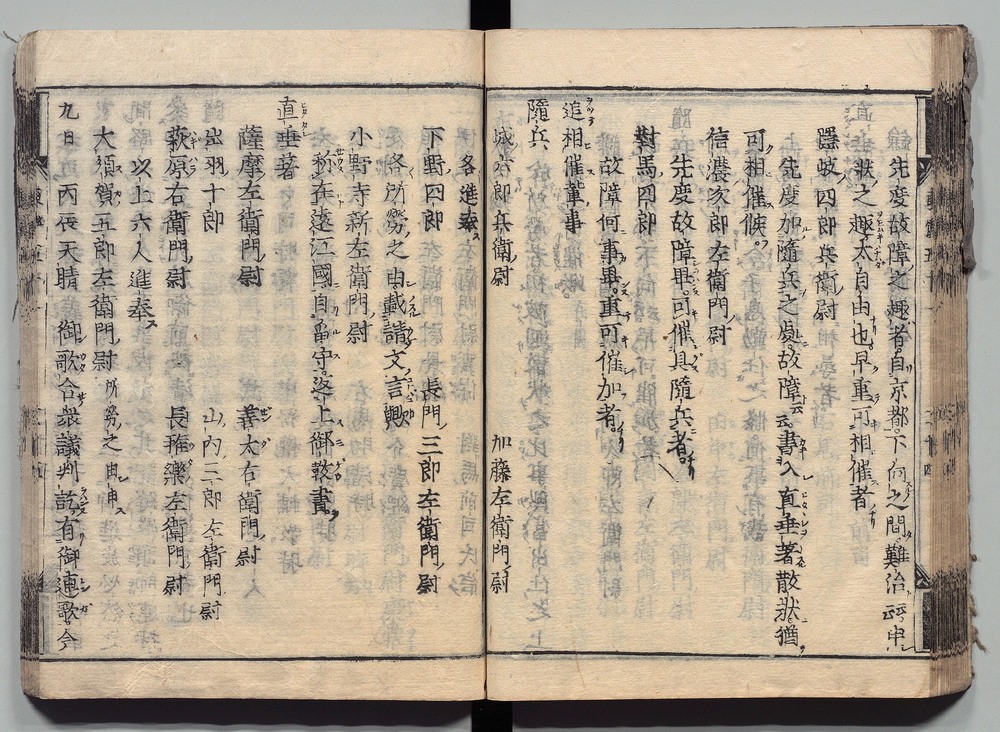 先度故障之趣者自京都下向之間難治之由申
状之趣太自由也早重可相催者
隠岐四郎兵衛尉
先度加隨兵之處故障云云書入直垂著散状猶
可相催候
信濃次郎左衛門尉
先度故障畢可催具隨兵者
對馬四郎
故障何事畢重可催加者
追相催輩事
隨兵
城六郎兵衛尉 加藤左衛門尉
各進奉ス
下野四郎 長門三郎左衛門尉
各所勞之由載請文言歟
小野寺新左衛門尉
称在遠江國自畄守送上御教書
直垂著
薩摩左衛門尉 善太右衛門尉
出羽十郎 山内三郎左衛門尉
萩原右衛門尉 長雅樂左衛門尉
以上六人進奉ス
大須賀五郎左衛門尉 所勞之由申ス
九日丙辰天晴 御歌合衆議判訖有御連歌今